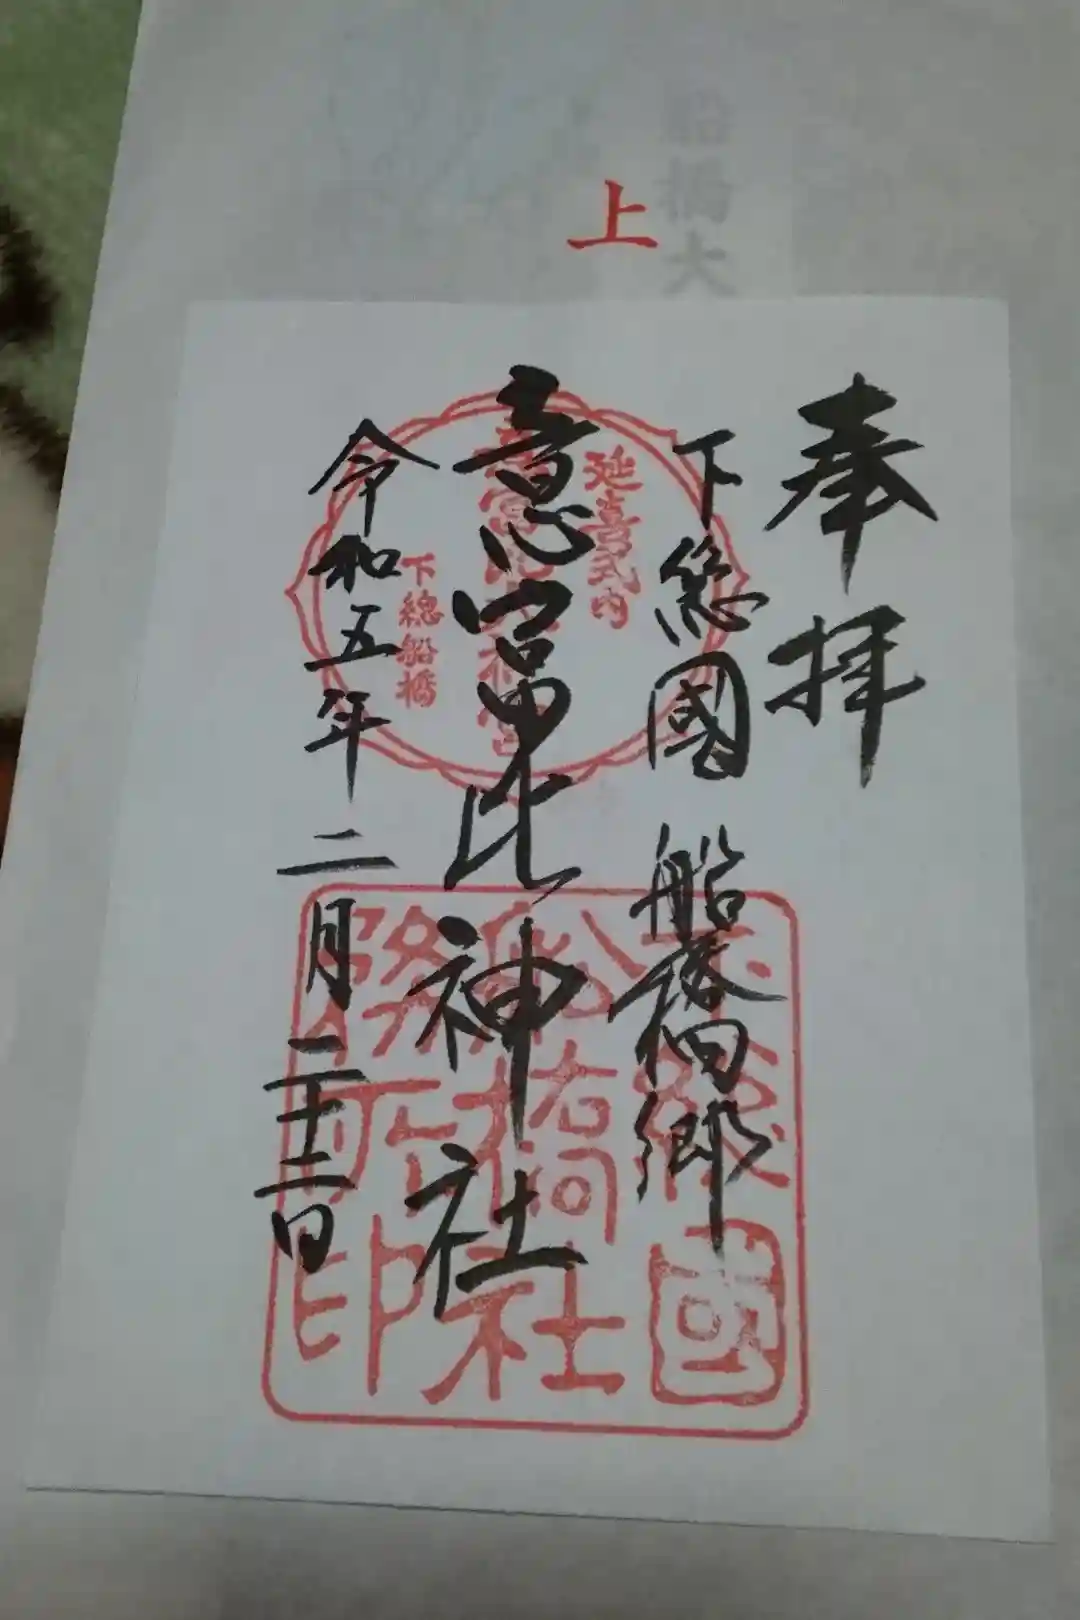 船橋大
上
奉拝
下總國 船橋郷
意富比神社
令和五年 二月 二十二日
延喜式内
意富比大神宮
下總船橋
下總國
船橋社
務所印